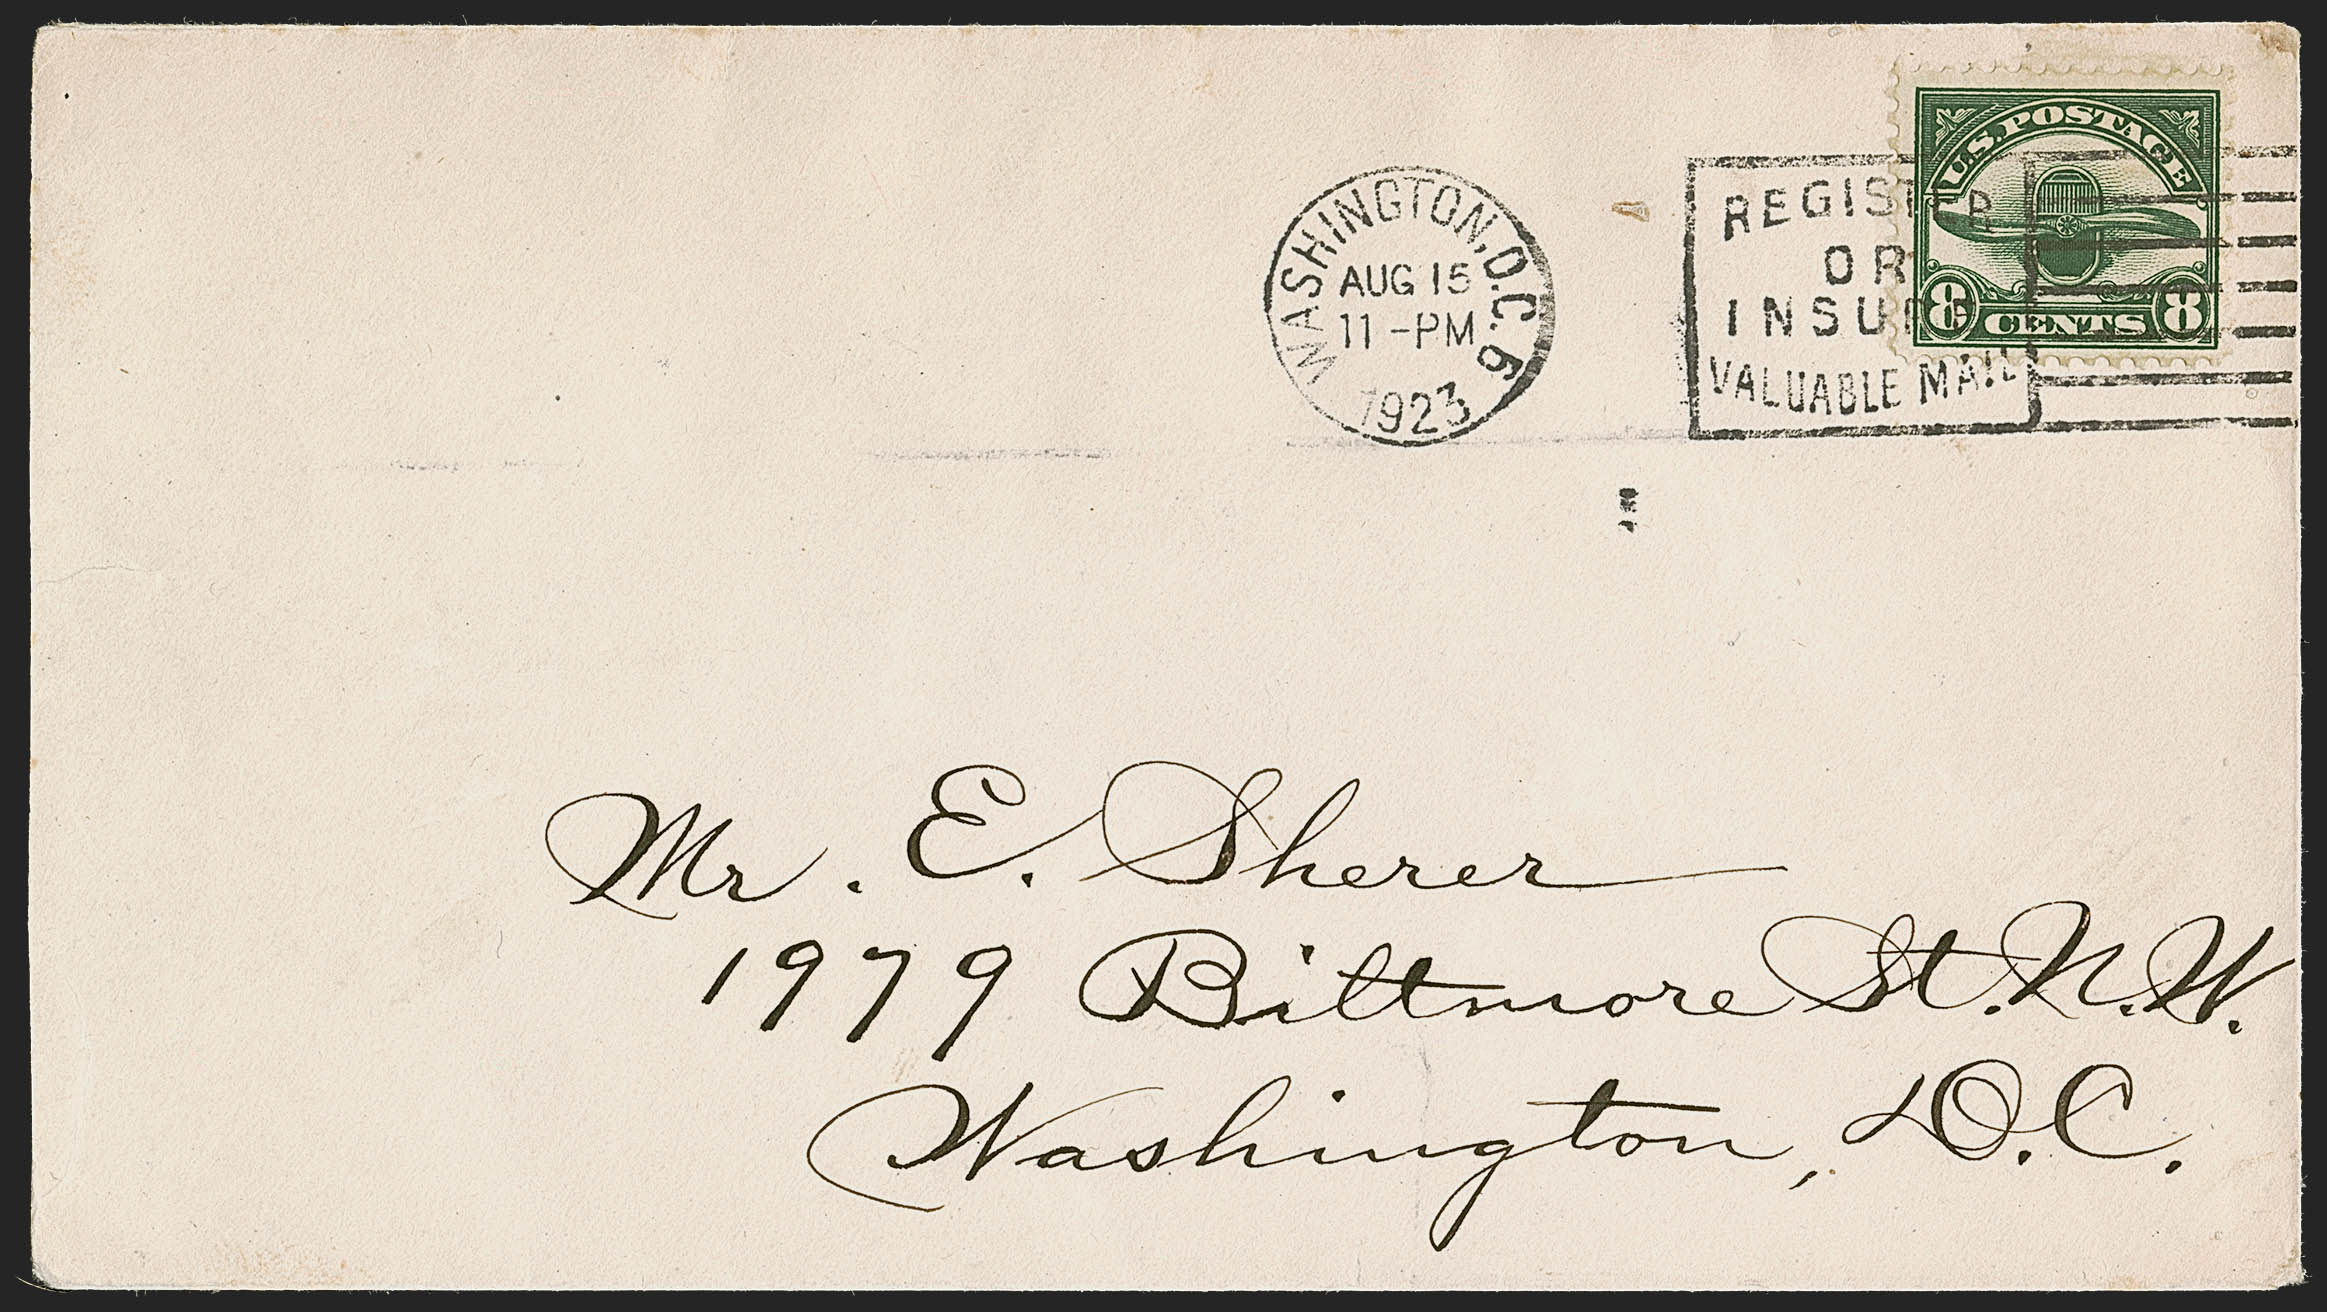 U.S. POSTAGE
8 CENTS 8
WASHINGTON, D.C. 6
AUG 15
11-PM
1923
REGISTER
OR
INSURE
VALUABLE MAIL
Mr. E. Sherer
1979 Biltmore St. N.W.
Washington, D.C.